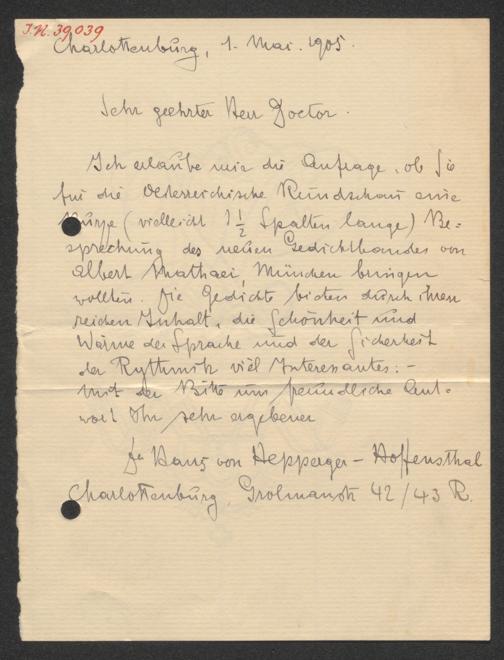 J.N. 39,039
Charlottenburg, 1. Mai. 1905.
Sehr geehrter Herr Doctor.
Ich erlaube mir die Anfrage, ob Sie
für die Oesterreichische Rundschau eine
kurze (vielleicht 1 1/2 Spalten lange) Be=
sprechung des neuen Gedichtbandes von
Albert Mathaei, München bringen
wollten. Die Gedichte bieten durch ihren
reichen Inhalt, die Schönheit und
Wärme der Sprache und der Sicherheit
der Rythmik viel Interessantes. –
Mit der Bitte um freundliche Ant=
wort Ihr sehr ergebener
Hans von Hepperger – Hoffensthal
Charlottenburg Grolmanstr 42/43 R.